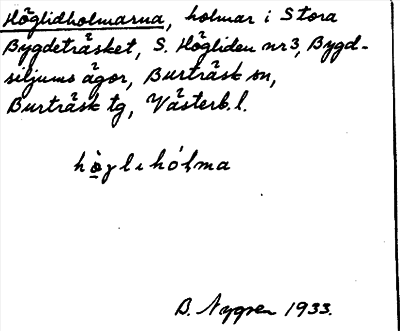 Höglidholmarna, holmar i Stora
Bygdeträsket, S. Högliden nr 3, Bygd-
siljums ägor, Burträsk sn,
Burträsk tg, Västerb. l.
hö̀glihólma
B. Nygren 1933.